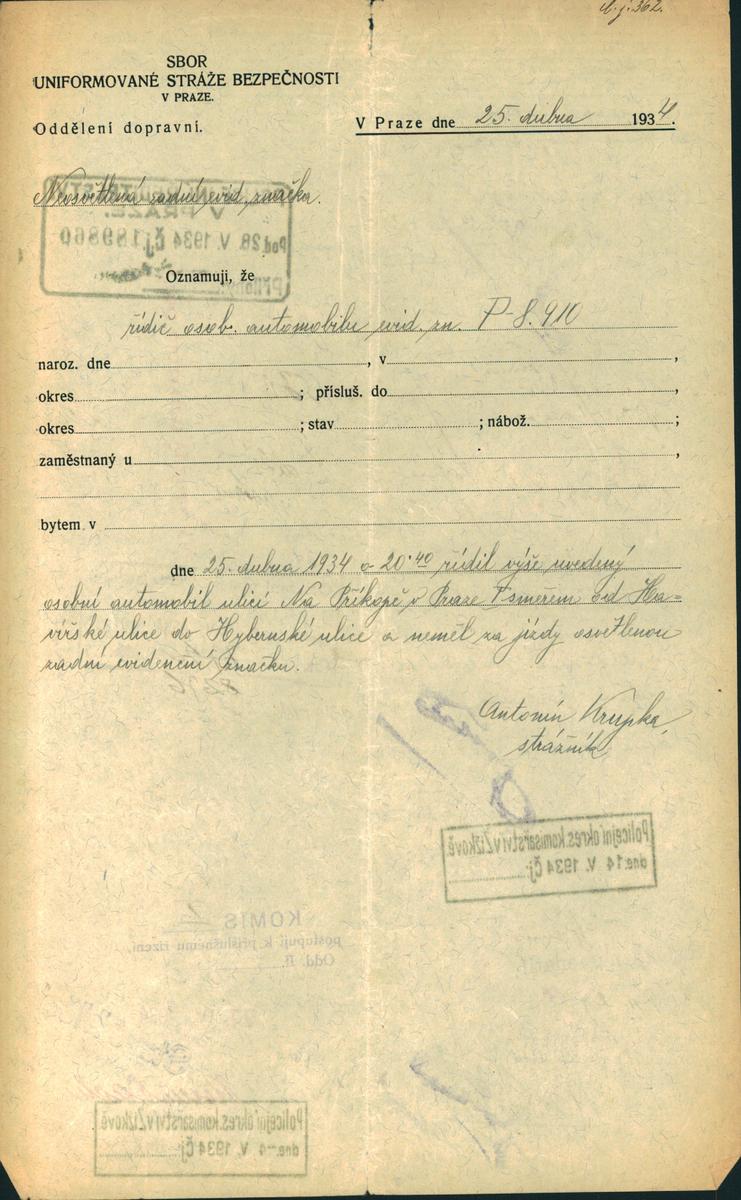 č.j. 362.
SBOR
UNIFORMOVANÉ STRÁŽE BEZPEČNOSTI
V PRAZE.
Oddělení dopravní.
V Praze dne 25. dubna 1934.
Neosvětlená zadní evid. značka.
V PRAZE.
Pod 28. V. 1934 Čj 189860
Oznamuji, že
řidič osob. automobilu evid. zn. P-8.910
naroz. dne , v ,
okres ; přísluš. do ,
okres ; stav ; nábož. ;
zaměstnaný u ,
bytem v
dne 25. dubna 1934 o 20·40 řídil výše uvedený
osobní automobil ulicí Na Příkopě v Praze I směrem od Ha=
vířské ulice do Hybernské ulice a neměl za jízdy osvětlenou
zadní evidenční značku.
Antonín Krupka,
strážník
Policejní okres. komisařství v Žižkově
dne 14 V. 1934 Čj.
KOMIS
postupuji k příslušnému řízení.
Odd. II.
Policejní okres. komisařství v Žižkově
dne -4. V. 1934 Čj